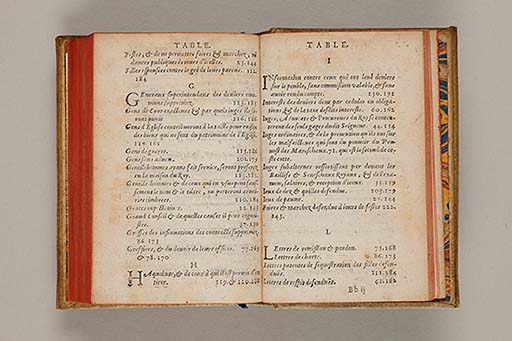 TABLE.
Festes, & de ne permettre foires & marchez, ni
dances publiques és jours d'icelles. 23.144
Filles espousees contre le gré de leurs parens. 112.
184
G
GEneraux superintendans des deniers com-
muns supprimez. 113.131
Gens de Courts
116.186
Gens d'Eglise contribueront à la taille pour raison
des biens qui ne sont du patrimoine de l'Eglise.
129.162
Gens de guerre. 115.126
Gens sans adveu. 101.179
Gentilshommes ayans fait service, seront
en la maison du Roy. 11.181
Gentils-hommes & de ceux qui en usurpent faus-
sement le nom & le tiltre, ou porteront armoi-
ries timbrees. 110.184
22.143
Grand Conseil & de quelles causes il peut cognoi-
stre. 37.150
Greffes des insinuations des contracts supprimez.
86.173
Greffiers, & du devoir de leurs offices. 77.163
& 78.170
H
HAquebute, & de ceux à qui il est permis d'en
tirer. 119. & 120.188
TABLE.
I
INformation contre ceux qui ont levé deniers
sur le peuple, sans commission valable, & sans
avoir rendu compte. 130.191
Interests des deniers deus par cedules ou obliga-
tions, & de la taxe desdits interests. 60.163
Juges, Advocats & Procureurs du Roy se conten-
teront des seuls gages dudit Seigneur. 44.154
Juges, & de la prevention qu'ils ont sur
les malfaicteurs qui sont du pouvoir du Pre-
vost des Mareschaux. 72. qui est le soixante de ce-
ste cotte.
Juges subalternes ressortissans par devant les
Baillifs & Seneschaux Royaux, & de l'exa-
men, salaires, & reception d'iceux. 55.159
Jeux de dez & quilles defendus. 105.179
Jeux de paume. 22.144
Foires & marchez defendus à jours de festes 222.
243.
L
LEttres de remission & pardon. 75.168
Lettres de charte. 86.173
Lettres patentes de sequestration des filles defen-
dues. 111.184
Lettres de respit defendues. 62.162
Bb ij